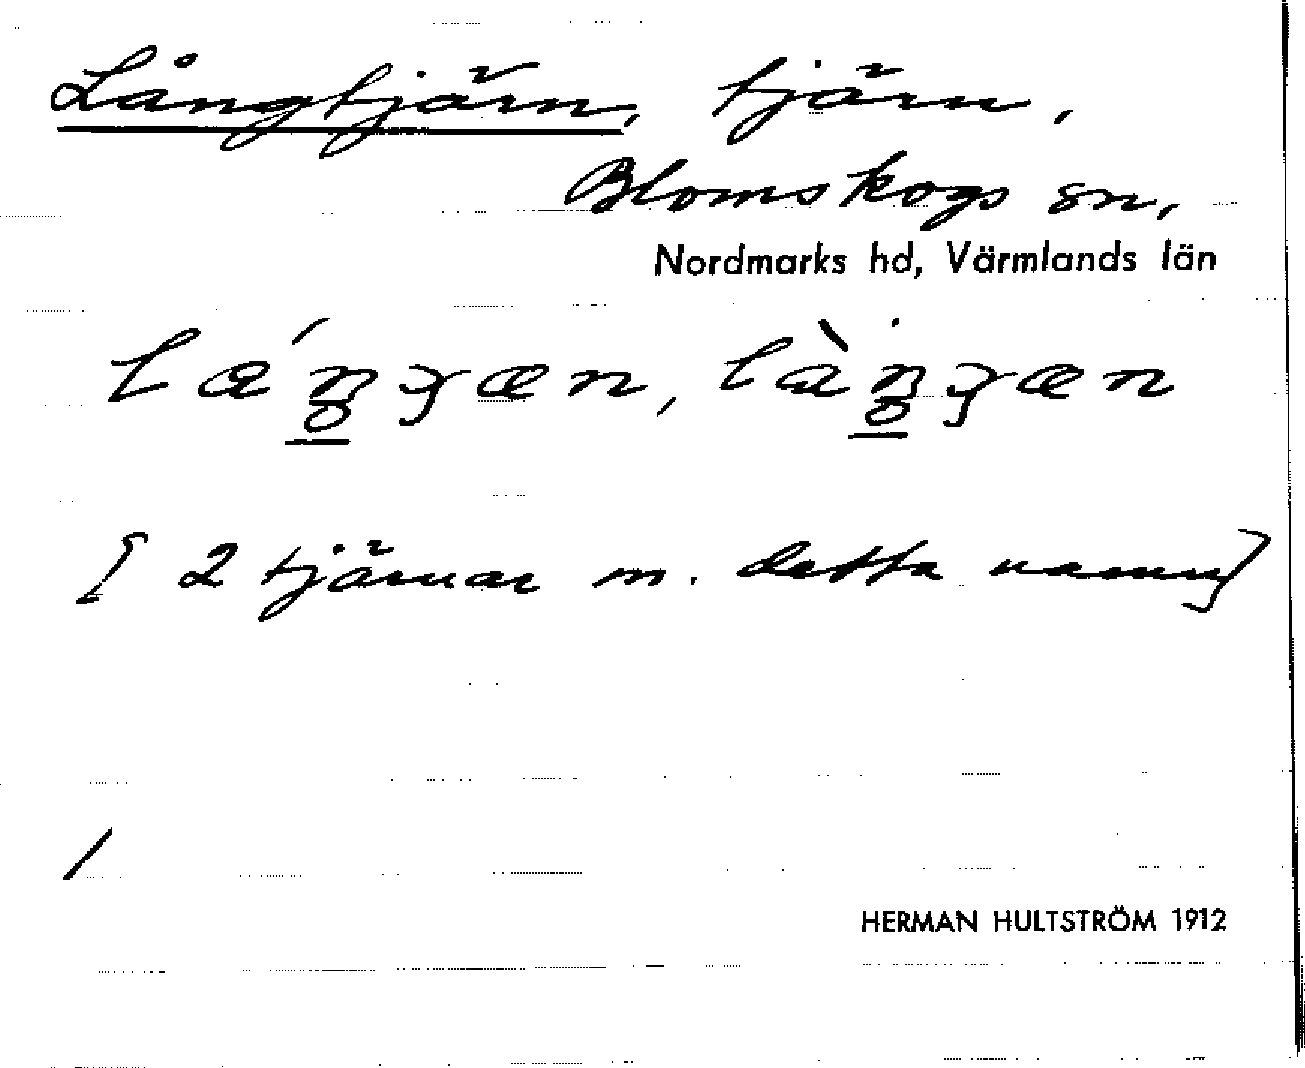 Långtjärn, tjärn,
Blomskogs sn,
Nordmarks hd, Värmlands län
[ 2 tjärnar m. detta namn]
/
HERMAN HULTSTRÖM 1912